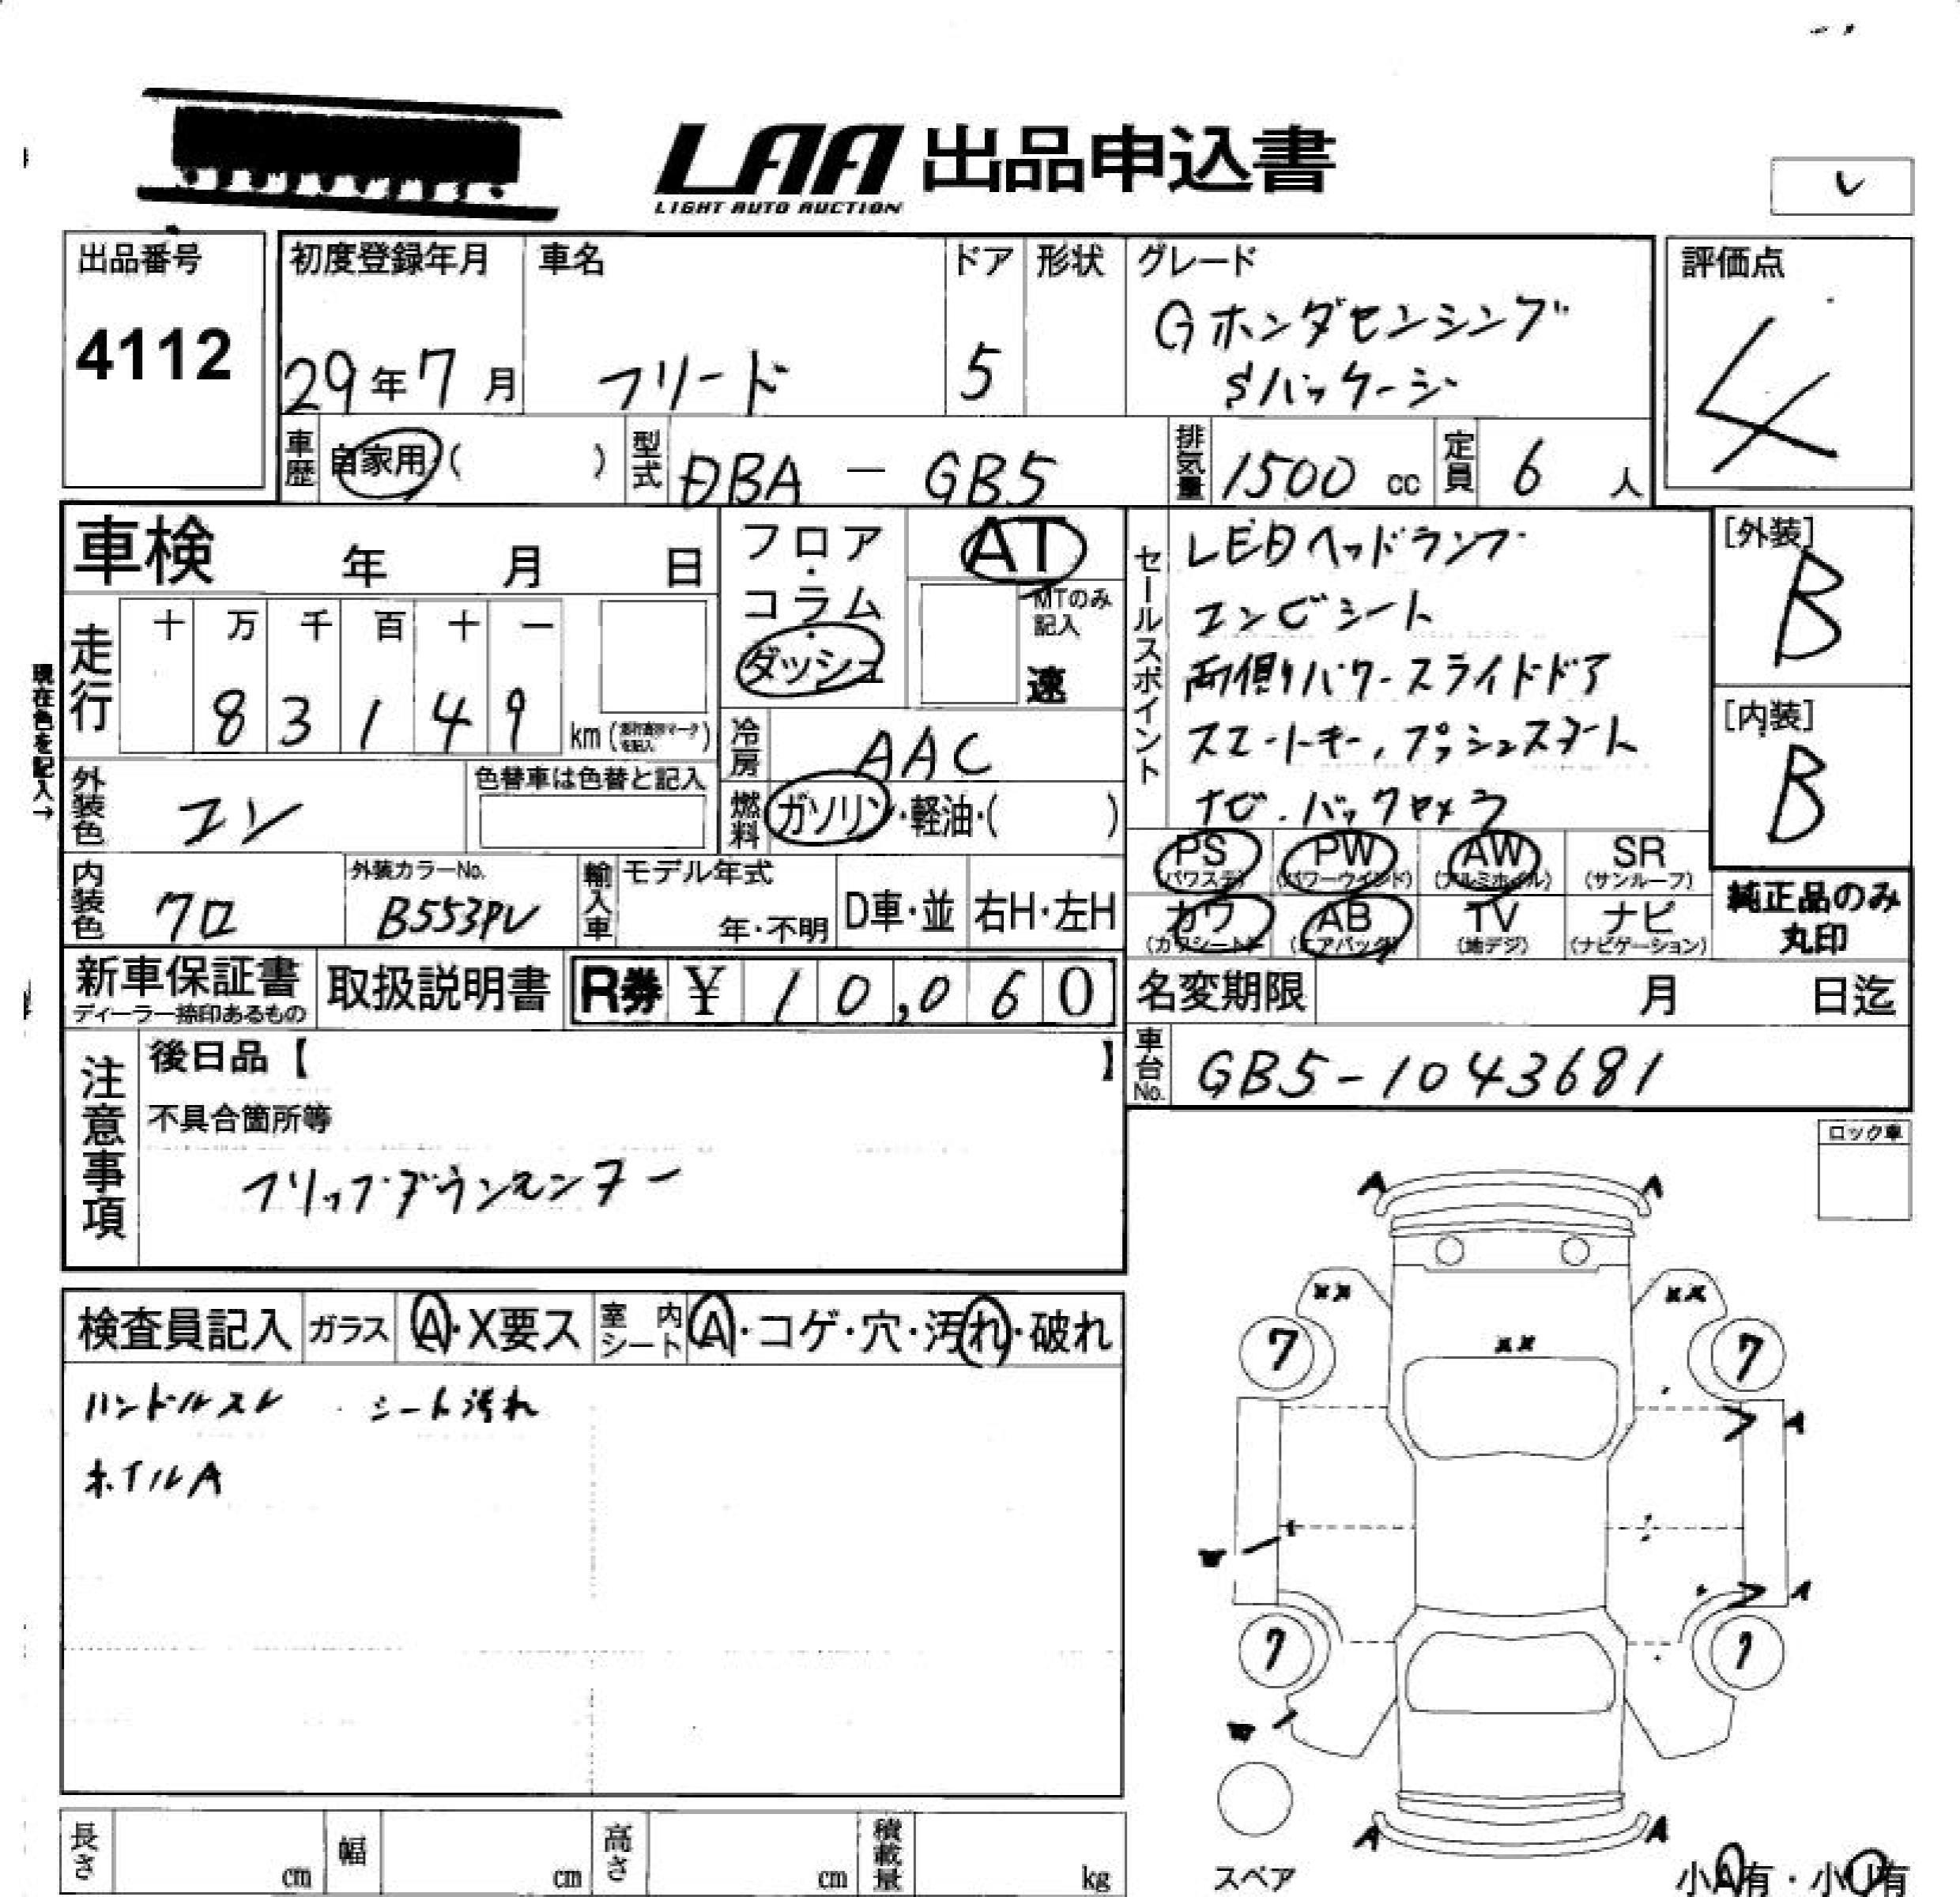 LAA 出品申込書
LIGHT AUTO AUCTION
レ
出品番号
4112
初度登録年月 車名 ドア 形状 グレード
29年7月 フリード 5
Gホンダセンシング
Sパッケージ
評価点
4
車歴 自家用( ) 型式 DBA - GB5 排気量 1500 cc 定員 6 人
車検 年 月 日
フロア・コラム・ダッシュ
AT
MTのみ記入
速
現在色を記入→
走行 十 万 千 百 十 一
8 3 1 4 9 km
冷房 AAC
外装色 コン
色替車は色替と記入
燃料 ガソリン・軽油・( )
内装色 クロ
外装カラーNo.
B553PV
輸入車 モデル年式
年・不明 D車・並 右H・左H
セールスポイント
LEDヘッドランプ
コンビシート
両側パワースライドドア
スマートキー、プッシュスタート
ナビ.バックカメラ
[外装]
B
[内装]
B
PS (パワステ) PW (パワーウインド) AW (アルミホイル) SR (サンルーフ)
カワ (カワシート) AB (エアバッグ) TV (地デジ) ナビ (ナビゲーション)
純正品のみ
丸印
新車保証書
ディーラー捺印あるもの
取扱説明書 R券 ¥ 10,060
名変期限 月 日迄
車台No. GB5-1043681
注意事項
後日品【 】
不具合箇所等
フリップダウンモニター
ロック車
検査員記入 ガラス A・X要ス 室内シート A・コゲ・穴・汚れ・破れ
ハンドルスレ ・シート汚れ
ホイルA
A A
xx xx
xx
7 7
A
W
A
7 7
W
A A
スペア
小A有・小U有
長さ cm 幅 cm 高さ cm 積載量 kg